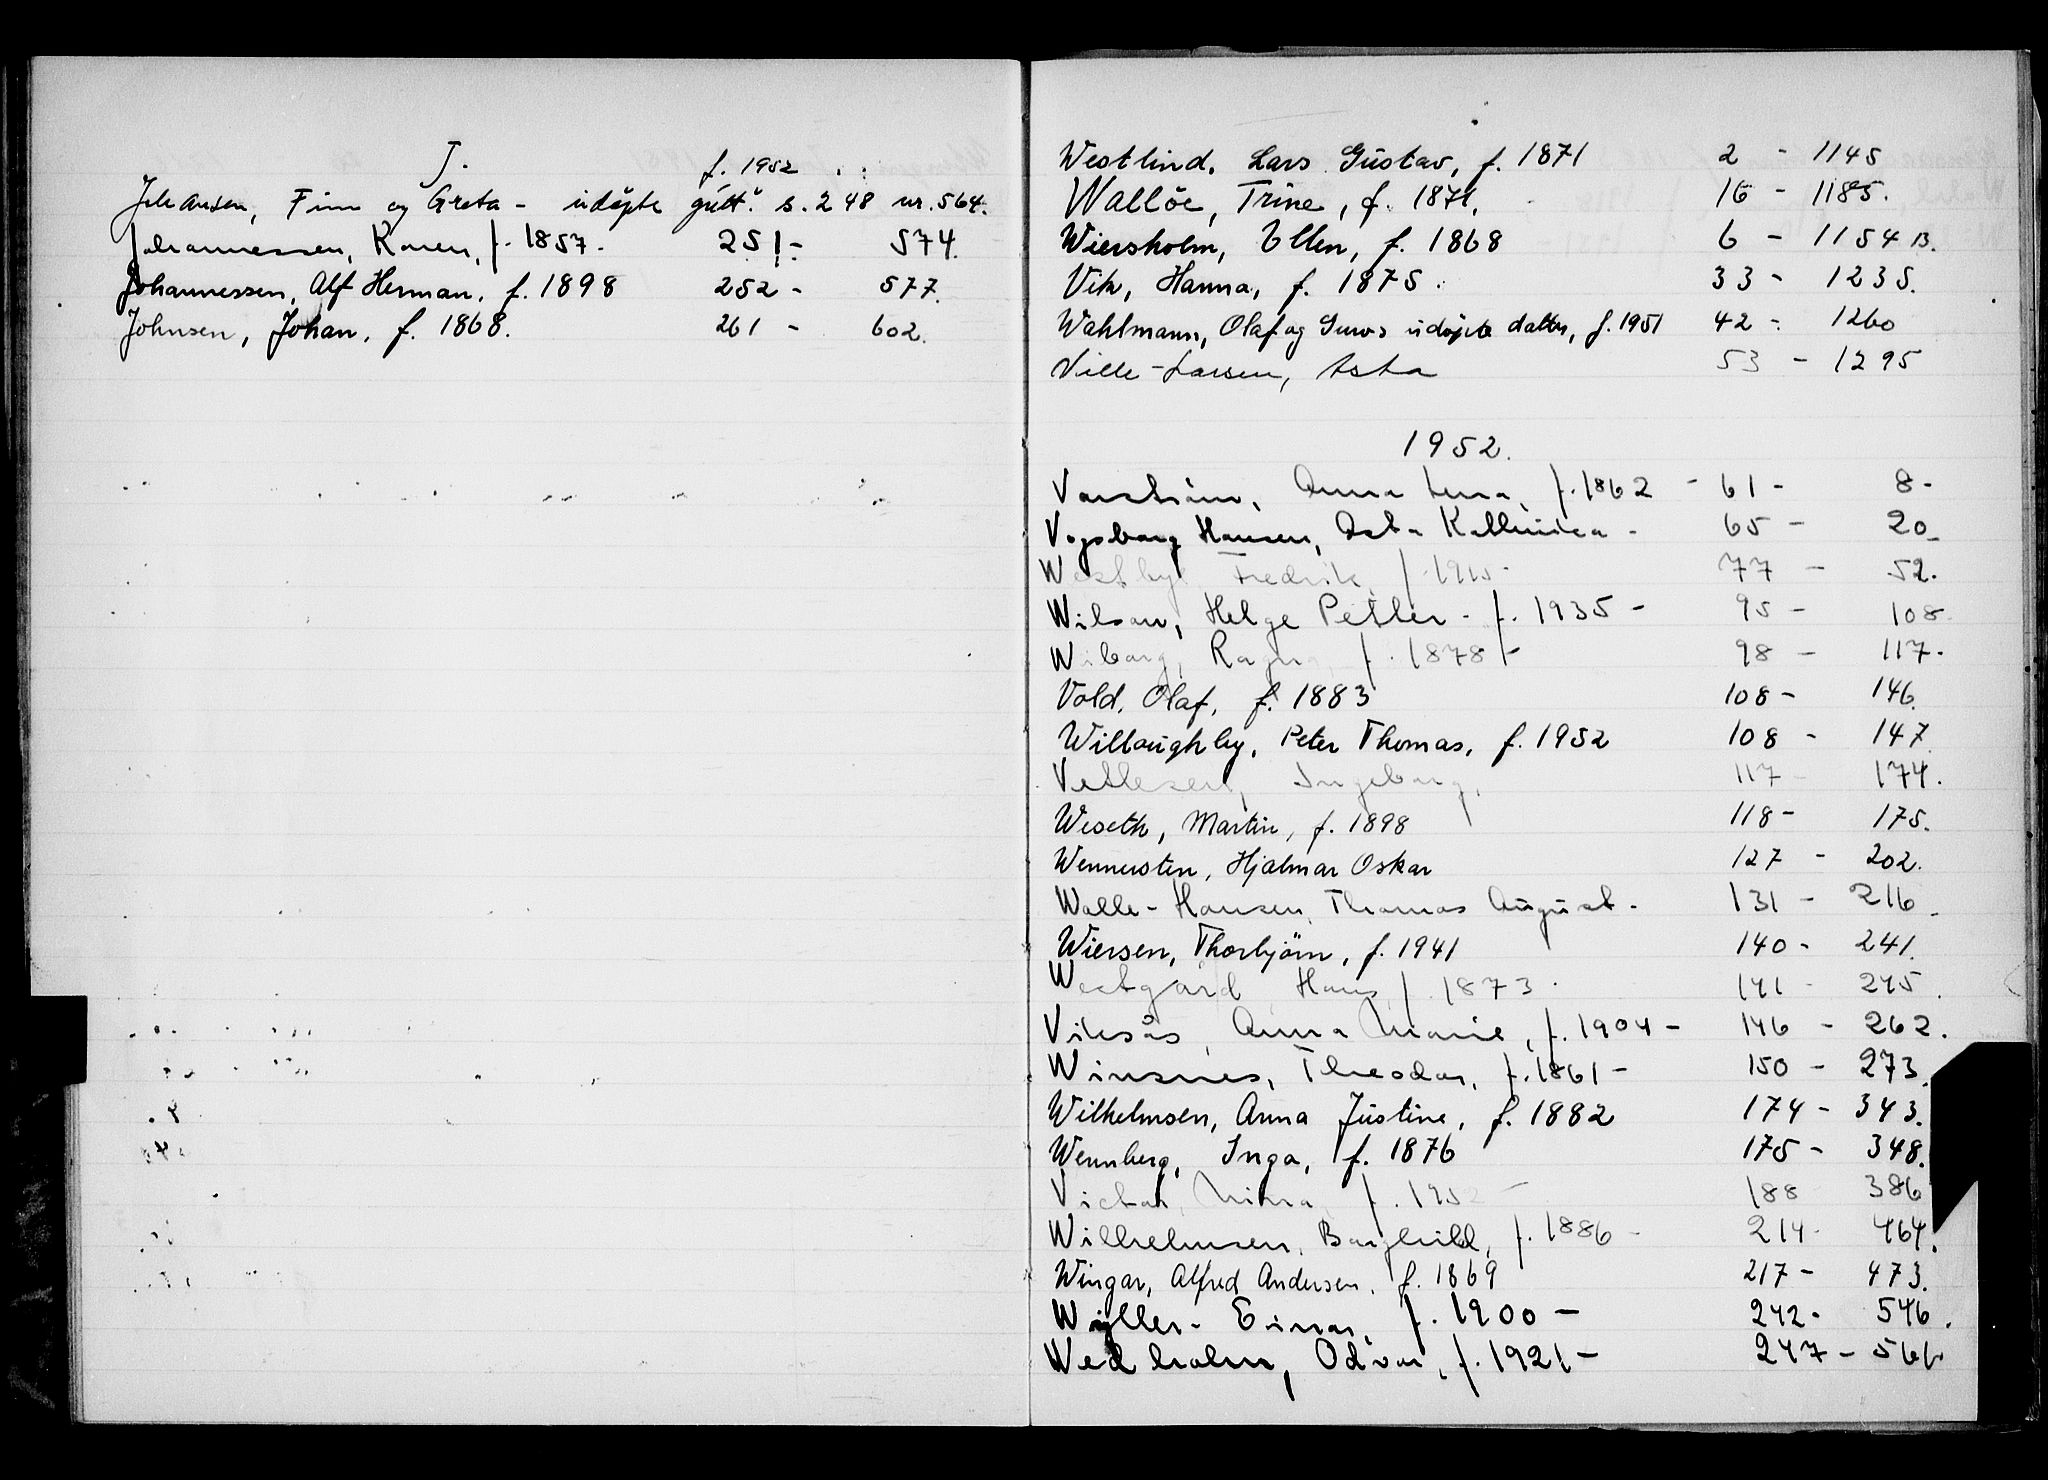 J.
f. 1952
Johansen, Finn og Greta - udöpte gutt. s. 248 nr. 564.
Johannessen, Karen, f. 1857. 251 - 574.
Johannessen, Alf Herman. f. 1898 252 - 577.
Johnsen, Johan. f. 1868. 261 - 602.
Westlind. Lars Gustav, f. 1871 2 - 1145
Wallöe, Trine, f. 1871. 16 - 1185.
Wiersholm, Ellen, f. 1868 6 - 1154 B.
Vik, Hanna, f. 1875. 33 - 1235.
Wahlmann, Olaf og Guros udöpte datter, f. 1951 42 - 1260
Wille-Larsen, Asta 53 - 1295
1952.
Anna Lena, f. 1862 - 61 - 8 -
Vogsborg Hansen, Asta Kathinca - 65 - 20 -
Westbye Fredrik, f. 1915 - 77 - 52.
Wilson, Helge Petter - f. 1935 - 95 - 108.
Wiborg, Ragna, f. 1878 - 98 - 117.
Vold. Olaf. f. 1883 108 - 146.
Willoughby, Peter Thomas, f. 1952 108 - 147
Vetlesen, Ingeborg, 117 - 174.
Weseth, Martin, f. 1898 118 - 175.
Wennersten, Hjalmar Oskar 127 - 202.
Walle-Hansen, Thomas August - 131 - 216.
Wiersen, Thorbjörn, f. 1941 140 - 241.
Westgård Hans, f. 1873. 141 - 245.
Viksås, Anna Marie, f. 1904 - 146 - 262.
Winsnes, Theodor, f. 1861 - 150 - 273.
Wilhelmsen, Anna Justine, f. 1882 174 - 343.
Wennberg, Inga, f. 1876 175 - 348.
Victor, Mina, f. 1952 - 188 386
Wilhelmsen, Borghild, f. 1886 - 214 - 464.
Wingar, Alfred Andersen. f. 1869 217 - 473.
Wyller - Einar, f. 1900 - 242 - 546.
Wedholm, Odvar, f. 1921 - 247 - 561.